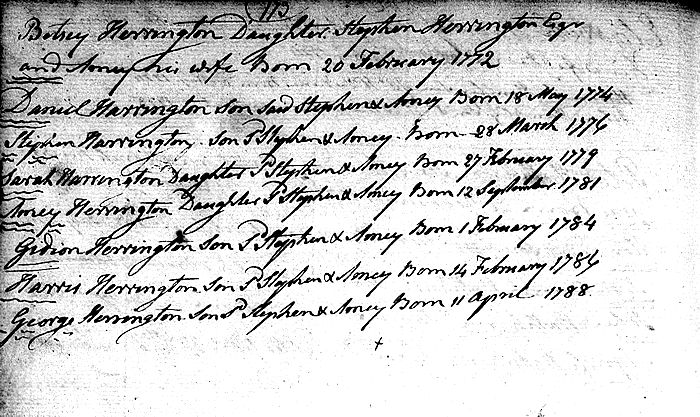 113
Betsey Herrington Daughter Stephen Herrington Esqr
and Amey his wife Born 20 February 1772
Daniel Harrington Son Said Stephen & Amey Born 18 May 1774
Stephen Harrington Son Sd Stephen & Amey Born 28 March 1776
Sarah Harrington Daughter Sd Stephen & Amey Born 27 February 1779
Amey Herrington Daughter Sd Stephen & Amey Born 12 September 1781
Gidion Herrington Son Sd Stephen & Amey Born 1 February 1784
Harris Herrington Son Sd Stephen & Amey Born 14 February 1786
George Herrington Son Sd Stephen & Amey Born 11 April 1788